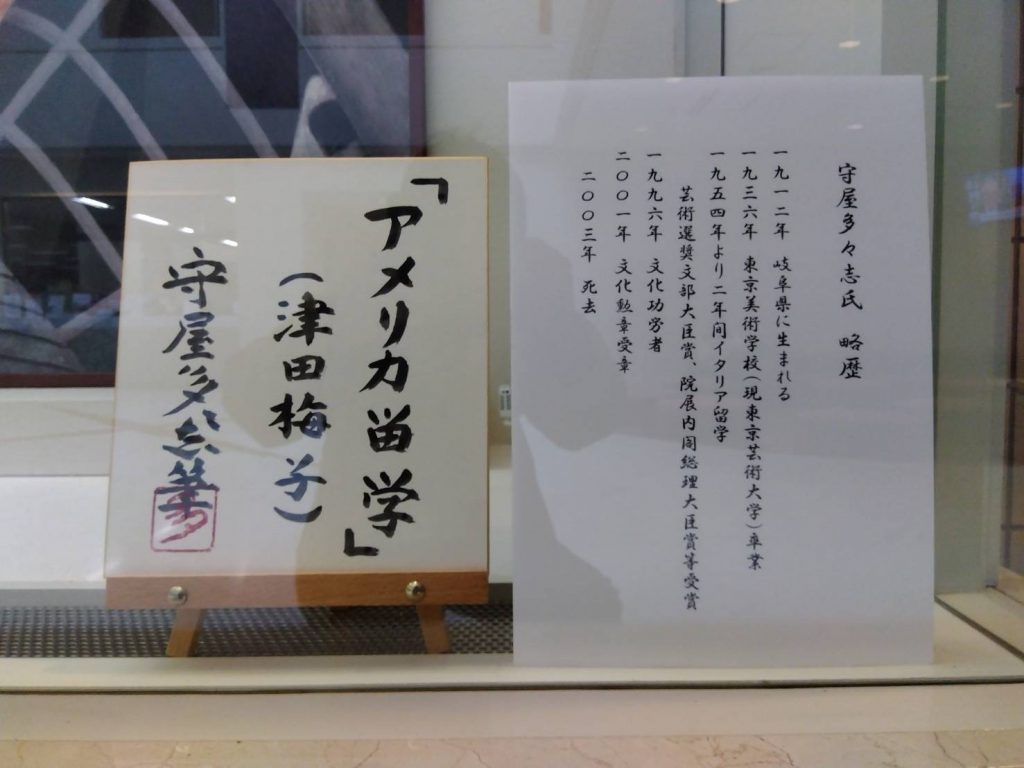 「アメリカ留学」
(津田梅子)
守屋多々志筆
守屋多々志氏 略歴
一九一二年 岐阜県に生まれる
一九三六年 東京美術学校(現東京芸術大学)卒業
一九五四年より二年间イタリア留学
芸術選奨文部大臣賞、院展内閣総理大臣賞等受賞
一九九六年 文化功労者
二〇〇一年 文化勲章受章
二〇〇三年 死去